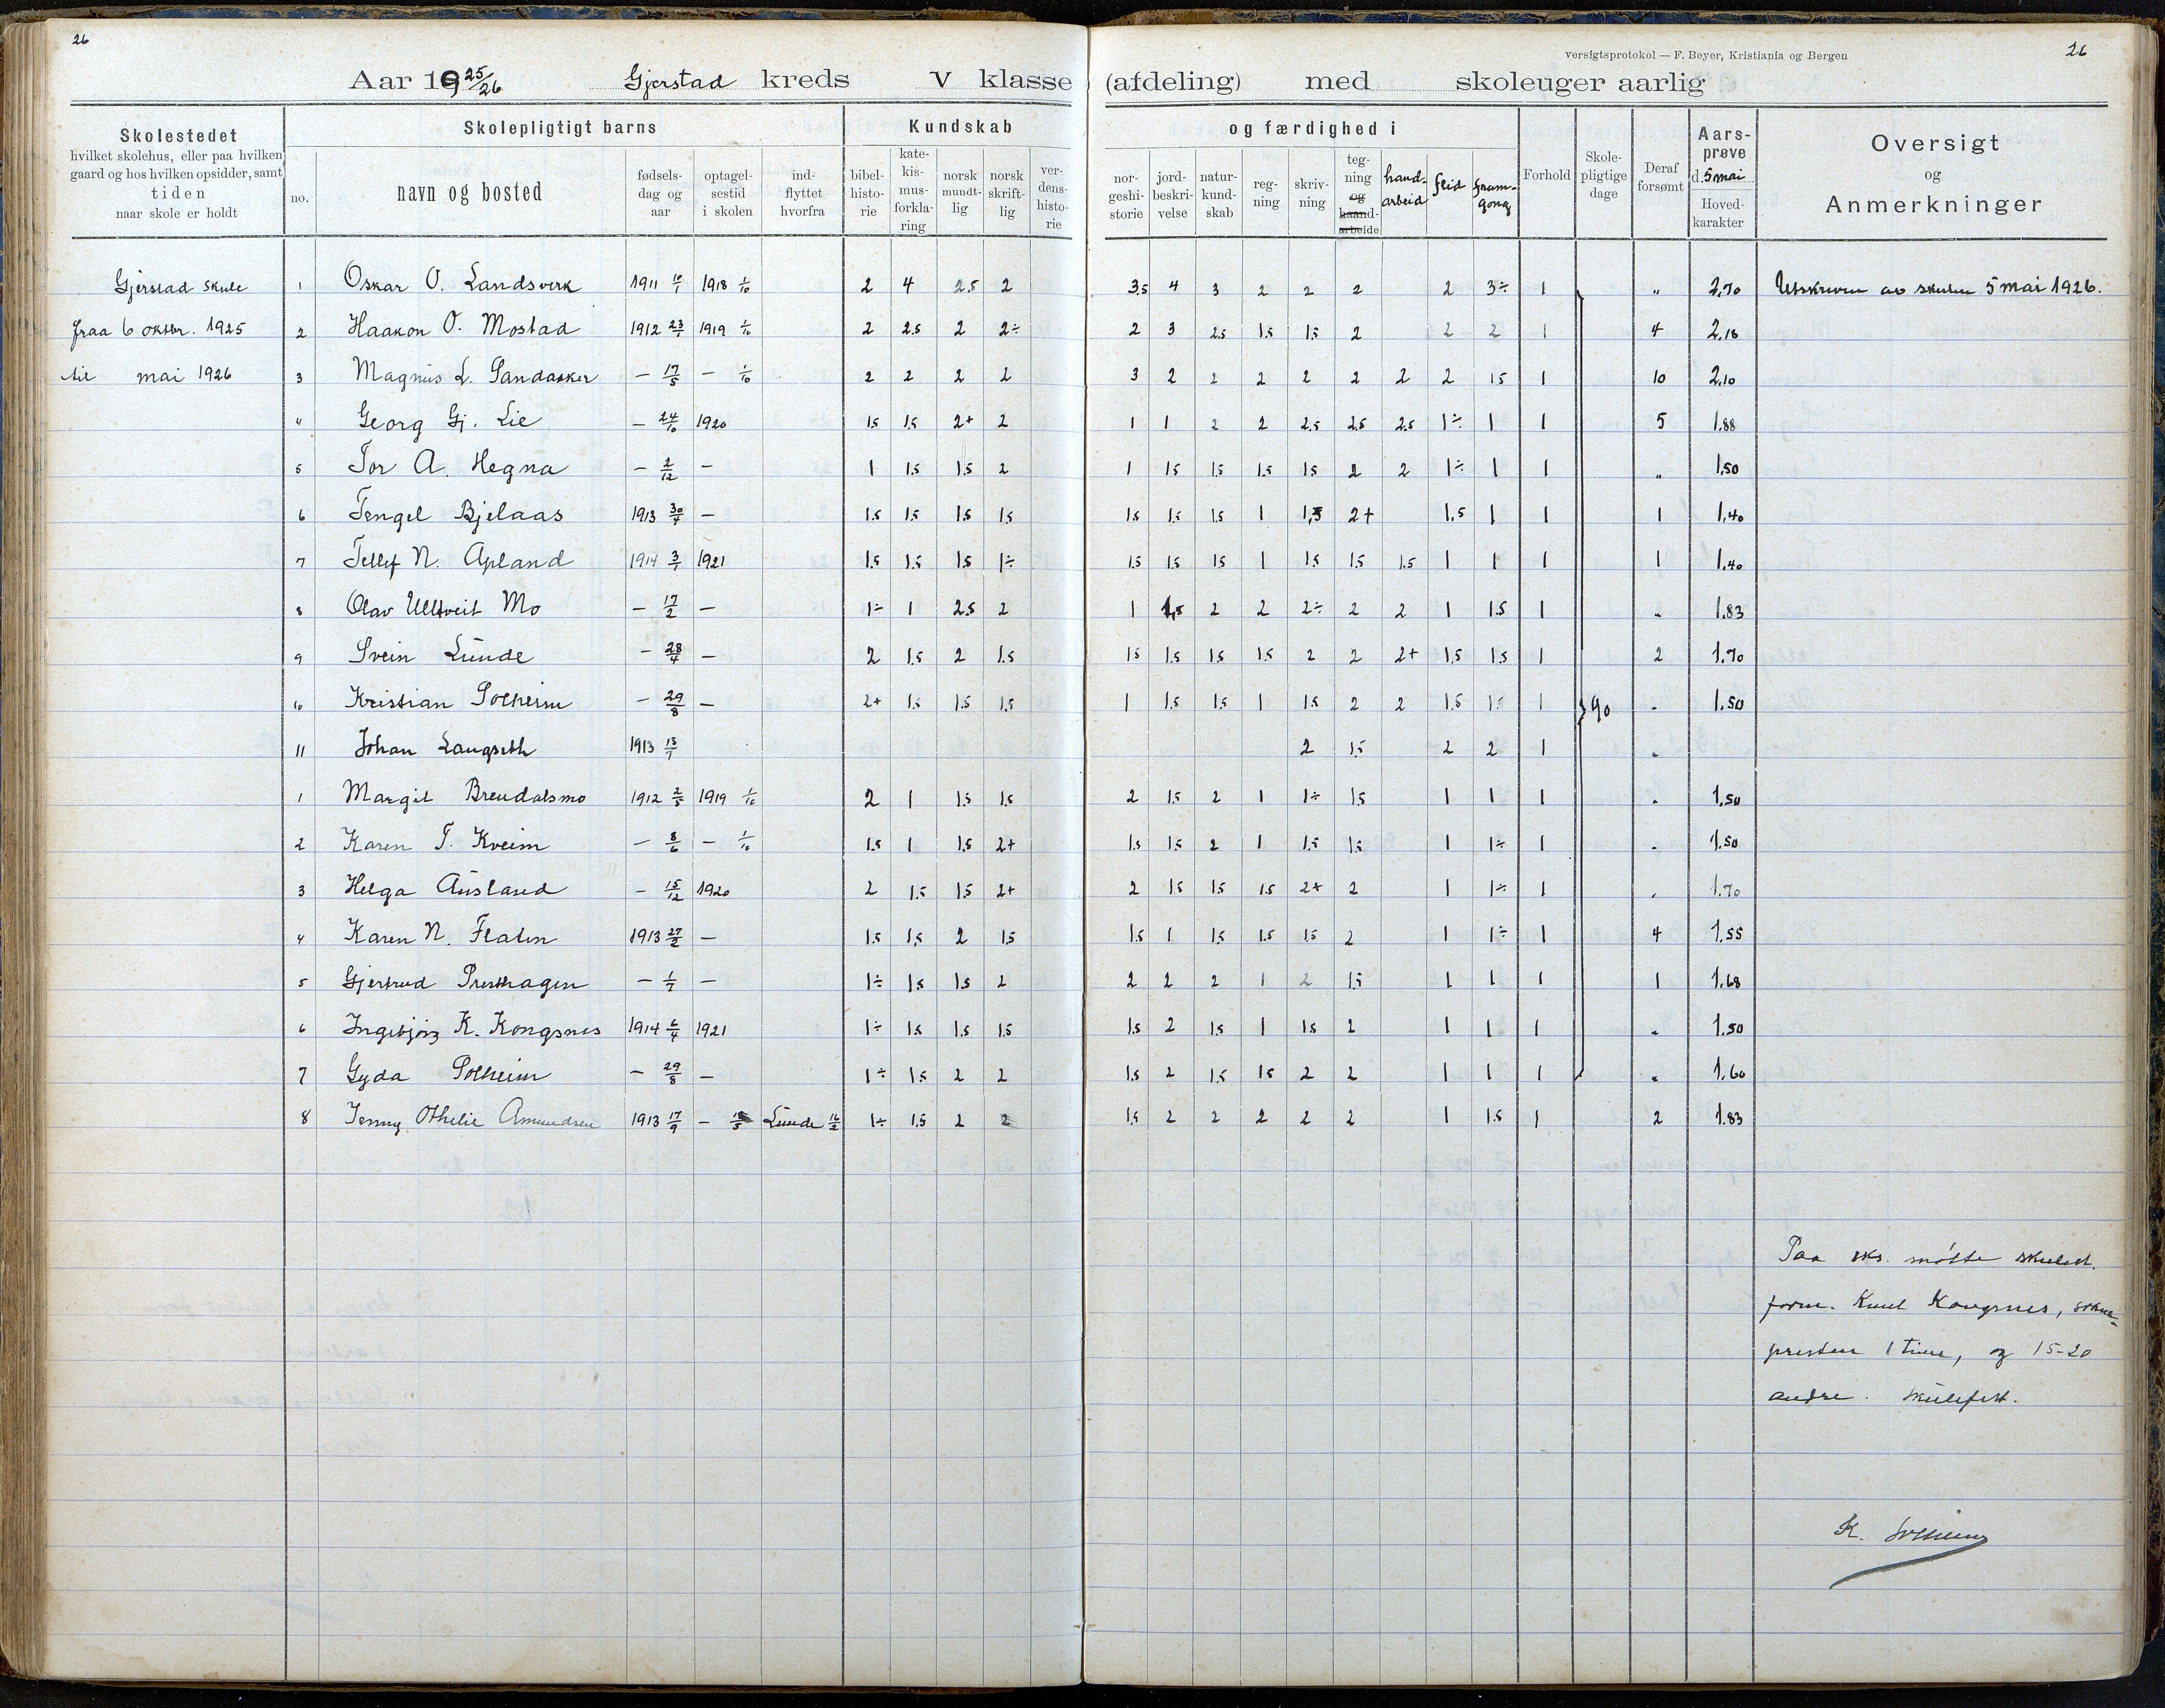 26
versigtsprotokol — F. Beyer, Kristiania og Bergen
26
Aar 1925/26 Gjerstad kreds V klasse (afdeling) med skoleuger aarlig
Skolestedet
hvilket skolehus, eller paa hvilken
gaard og hos hvilken opsidder, samt
tiden
naar skole er holdt
Skolepligtigt barns
no.
navn og bosted
fødsels-
dag og
aar
optagel-
sestid
i skolen
ind-
flyttet
hvorfra
Kundskab
bibel-
histo-
rie
kate-
kis-
mus-
forkla-
ring
norsk
mundt-
lig
norsk
skrift-
lig
ver-
dens-
histo-
rie
og færdighed i
nor-
geshi-
storie
jord-
beskri-
velse
natur-
kund-
skab
reg-
ning
skriv-
ning
teg-
ning
og
haand-
arbeide
hand-
arbeid
flid
fram-
gong
Forhold
Skole-
pligtige
dage
Deraf
forsømt
Aars-
prøve
d. 5 mai
Hoved-
karakter
Oversigt
og
Anmerkninger
Gjerstad skule 1 Oskar O. Landsverk 1911 10/1 1918 1/10 2 4 2.5 2 3.5 4 3 2 2 2 2 3÷ 1 „ 2,70 Utskreven av skulen 5 mai 1926.
fraa 6 oktbr. 1925 2 Haakon O. Mostad 1912 23/1 1919 1/10 2 2.5 2 2÷ 2 3 2.5 1.5 1.5 2 2 2 1 4 2,18
til mai 1926 3 Magnus L. Sandaaker — 17/5 — 1/10 2 2 2 2 3 2 2 2 2 2 2 2 15 1 10 2,10
4 Georg Gj. Lie — 24/10 1920 1.5 1.5 2+ 2 1 1 2 2 2.5 2.5 2.5 1÷ 1 1 5 1.88
5 Tor A. Hegna — 2/12 — 1 1.5 1.5 2 1 15 1.5 1.5 15 2 2 1÷ 1 1 „ 1,50
6 Tengel Bjelaas 1913 30/4 — 1.5 1.5 1.5 1.5 1.5 1.5 1.5 1 1,5 2+ 1.5 1 1 1 1,40
7 Tellef N. Apland 1914 3/1 1921 1.5 1.5 1.5 1÷ 1.5 1.5 15 1 1.5 1.5 1.5 1 1 1 1 1,40
8 Olav Ulltveit Mo — 17/2 — 1÷ 1 2.5 2 1 1,5 2 2 2÷ 2 2 1 1.5 1 „ 1.83
9 Svein Lunde — 28/4 — 2 1.5 2 1.5 15 1.5 1.5 1.5 2 2 2+ 1.5 1.5 1 2 1.70
10 Kristian Solheim — 29/8 — 2+ 1.5 1.5 1.5 1 1.5 1.5 1 1.5 2 2 1.5 1.5 1 90 „ 1.50
11 Johan Langseth 1913 15/7 2 1.5 2 2 1 „
1 Margit Brendalsmo 1912 2/5 1919 1/10 2 1 1.5 1.5 2 1.5 2 1 1÷ 15 1 1 1 „ 1.50
2 Karen T. Kveim — 8/6 — 1/10 1.5 1 1.5 2+ 1.5 1.5 2 1 1.5 1.5 1 1÷ 1 „ 1.50
3 Helga Ausland — 15/12 1920 2 1.5 15 2+ 2 15 1.5 1.5 2+ 2 1 1÷ 1 „ 1.70
4 Karen N. Flaten 1913 27/2 — 1.5 1,5 2 15 1.5 1 1.5 1.5 1.5 2 1 1÷ 1 4 1.55
5 Gjertrud Presthagen — 1/7 — 1÷ 1.5 1.5 2 2 2 2 1 2 1.5 1 1 1 1 1.68
6 Ingebjørg K. Kongsnes 1914 6/4 1921 1÷ 1.5 1.5 15 1.5 2 1.5 1 1.5 2 1 1 1 „ 1.50
7 Gyda Solheim — 29/8 — 1÷ 1.5 2 2 1.5 2 1.5 1.5 2 2 1 1 1 „ 1,60
8 Jenny Othelie Amundsen 1913 17/9 — Lunde 16/2 1÷ 1.5 2 2 1.5 2 2 2 2 2 1 1.5 1 2 1.83
Paa eks. møtte skulest.
form. Knut Kongsnes, sokne-
presten 1 time, og 15-20
andre. Skulefest.
K. Solheim